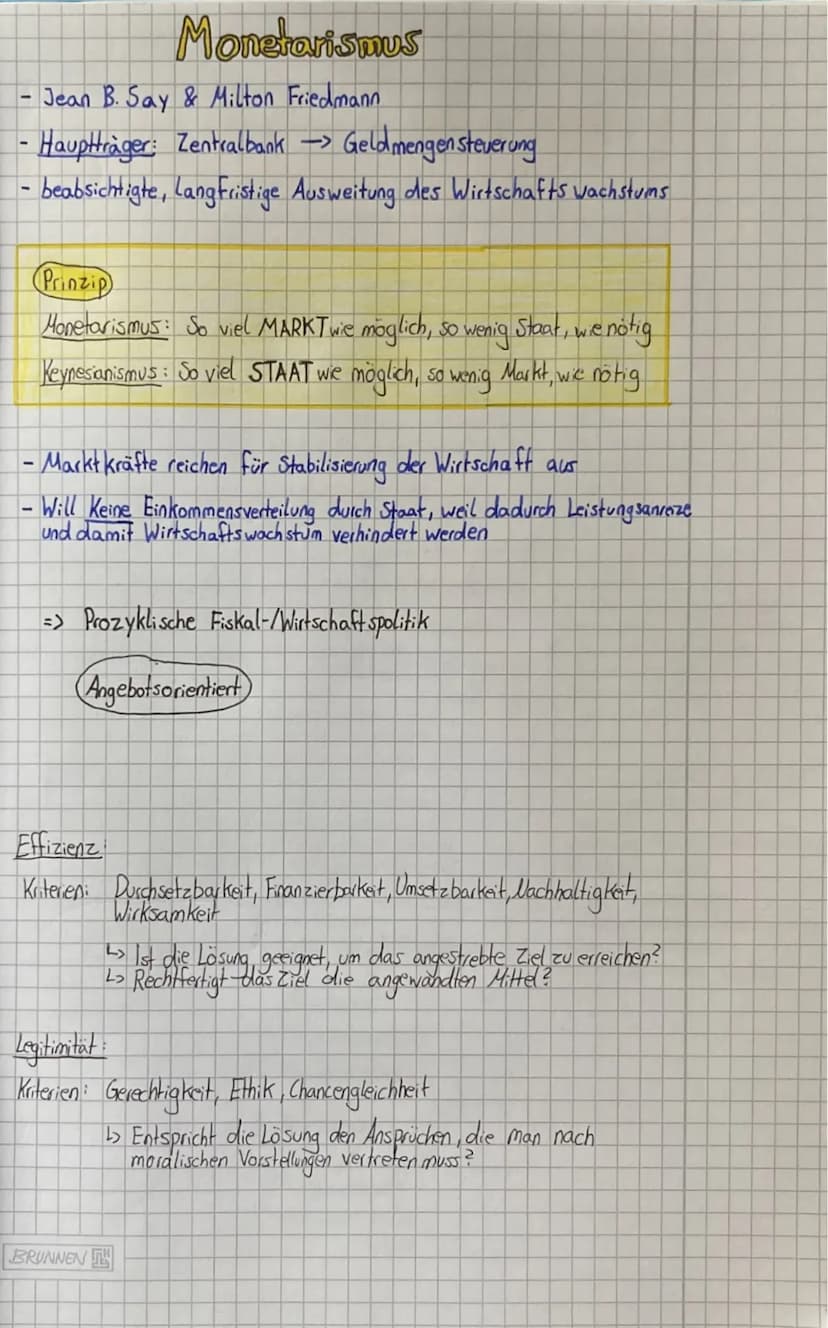 Monetarismus
- Jean B. Say & Milton Friedmann
- Hauptträger: Zentralbank → Geldmengensteuerung
- beabsichtigte, langfristige Ausweitung des Wirtschaftswachstums
Prinzip
Monetarismus: So viel MARKT wie möglich, so wenig Staat, wie nötig
Keynesianismus: So viel STAAT wie möglich, so wenig Markt, wie nötig
- Marktkräfte reichen für Stabilisierung der Wirtschaft aus
- Will Keine Einkommensverteilung durch Staat, weil dadurch Leistungsanreize
und damit Wirtschaftswachstum verhindert werden
=> Prozyklische Fiskal-/Wirtschaftspolitik
Angebotsorientiert
Effizienz:
Kriterien: Durchsetzbarkeit, Finanzierbarkeit, Umsetzbarkeit, Nachhaltigkeit,
Wirksamkeit
↳ Ist die Lösung geeignet, um das angestrebte Ziel zu erreichen?
↳ Rechtfertigt das Ziel die angewandten Mittel?
Legitimität:
Kriterien: Gerechtigkeit, Ethik, Chancengleichheit
↳ Entspricht die Lösung den Ansprüchen, die man nach
moralischen Vorstellungen vertreten muss?
BRUNNEN